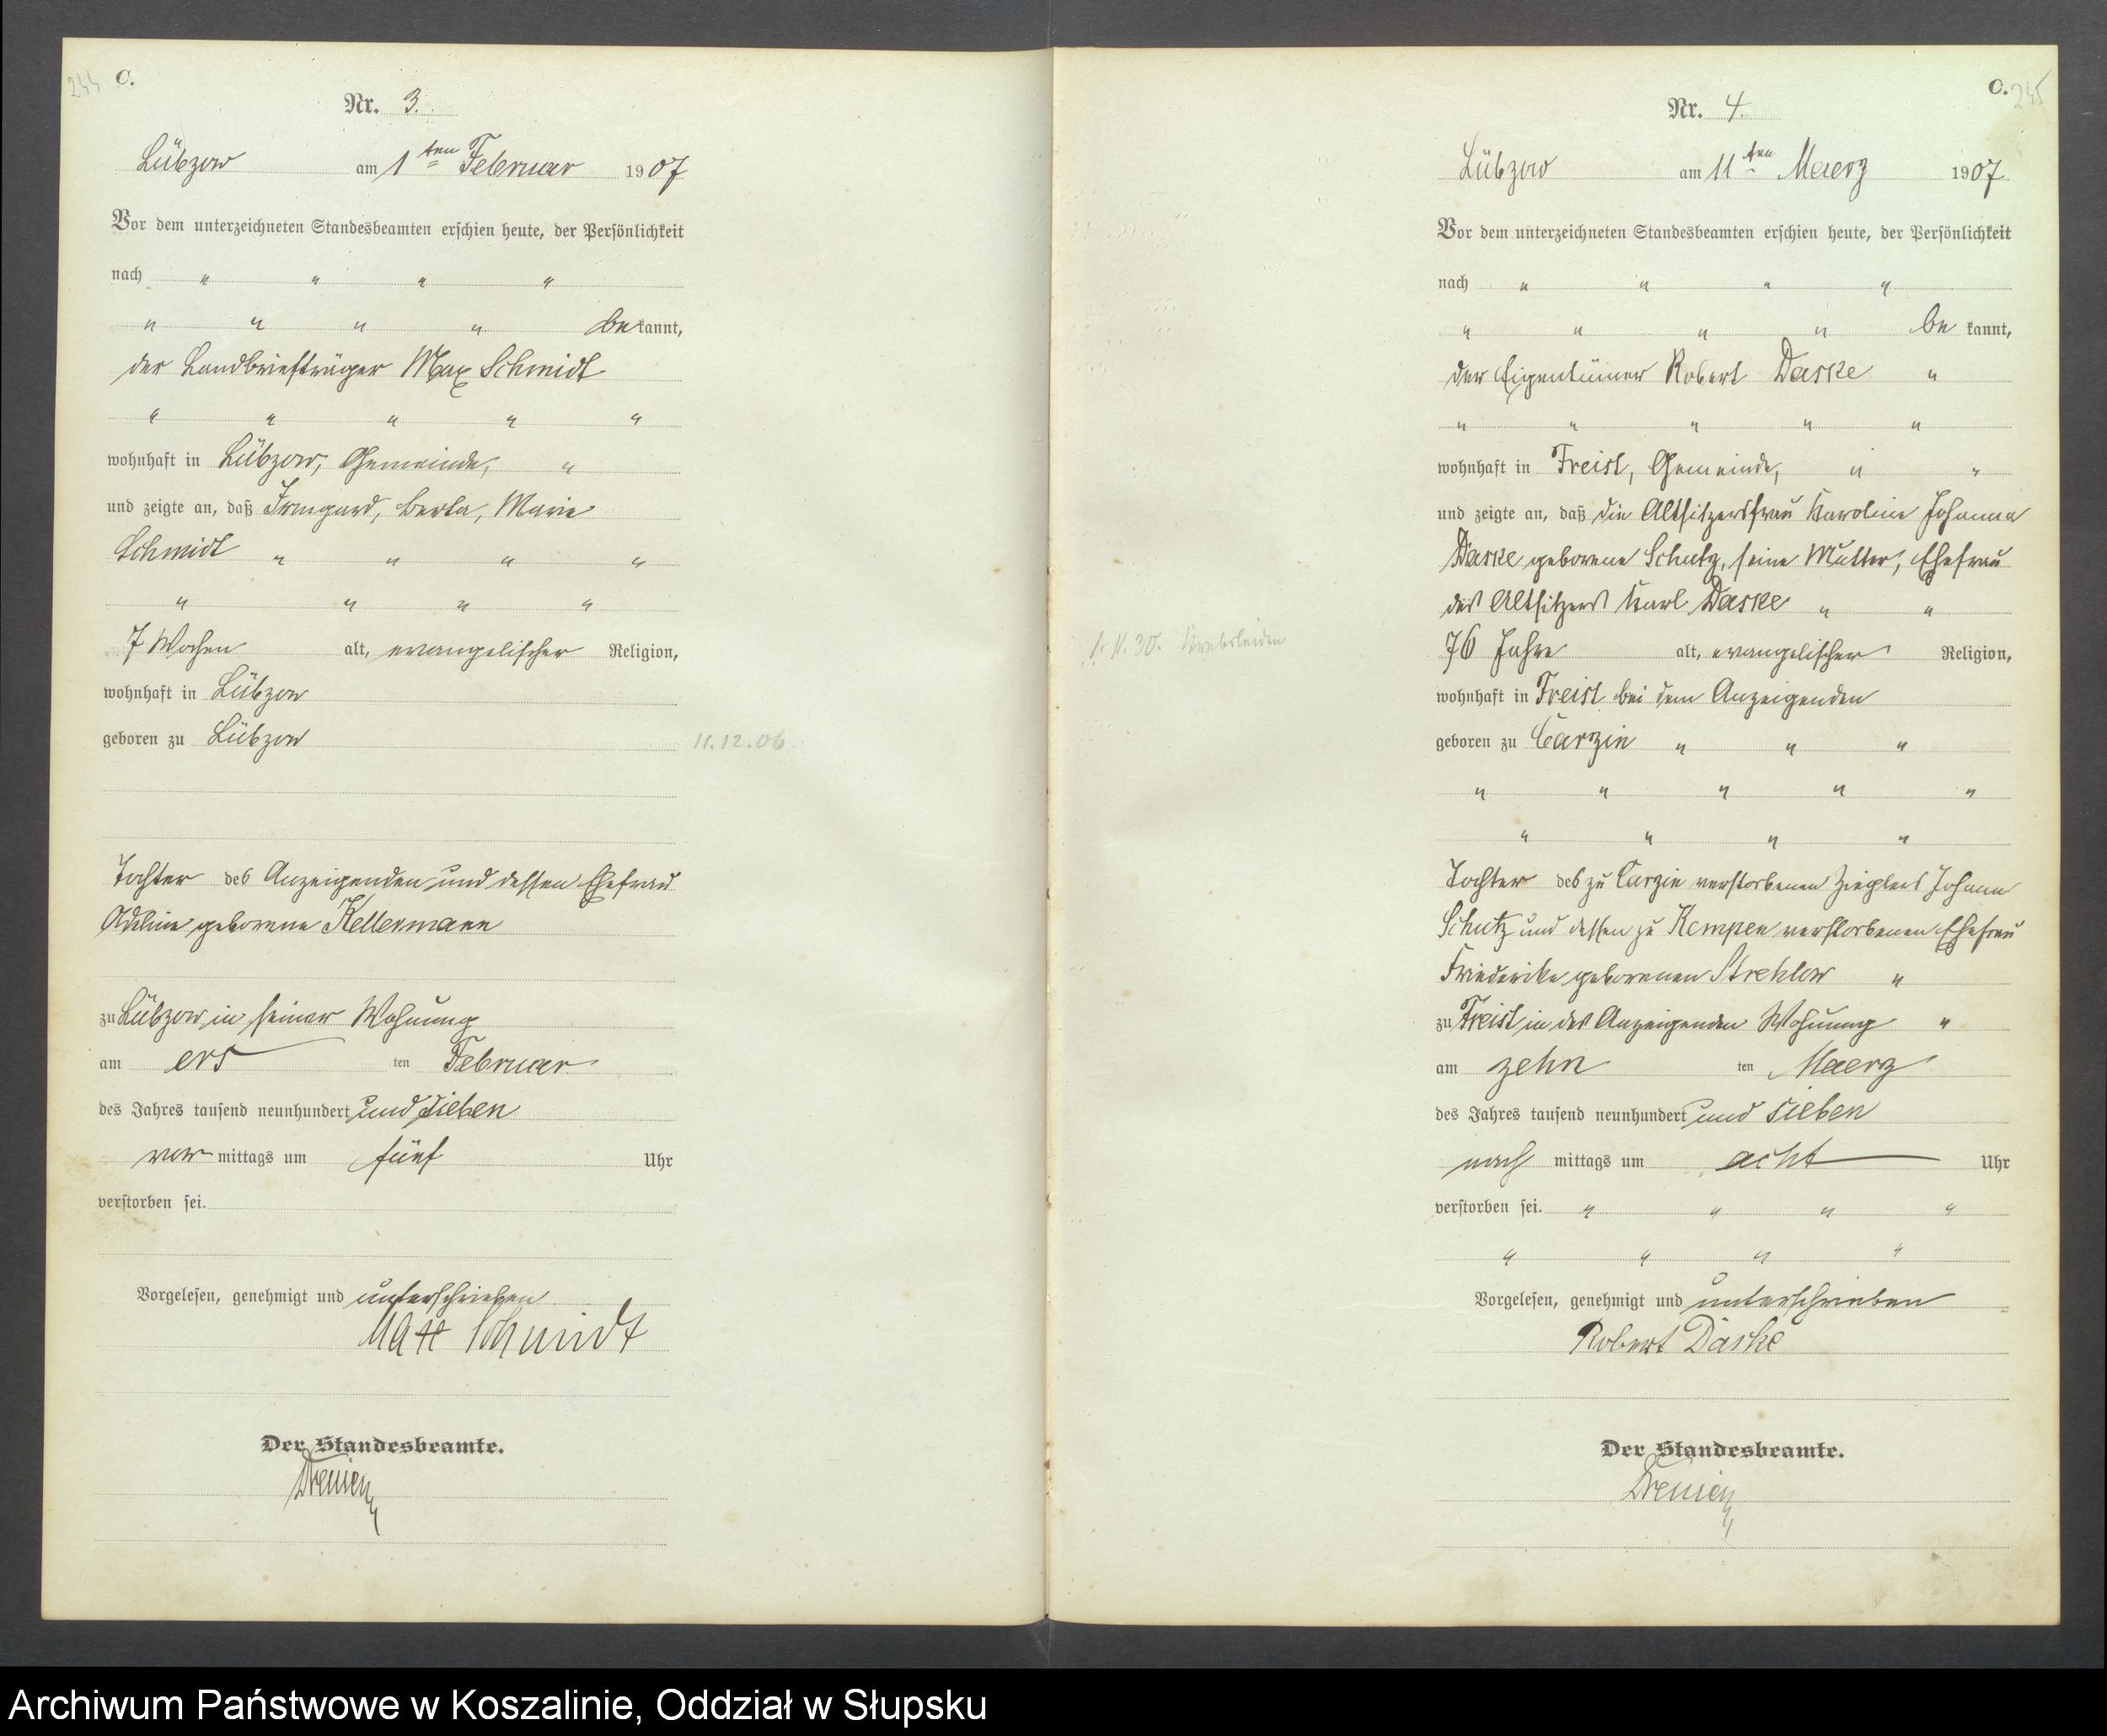 244 C.
Nr. 3.
Lübzow am 1ten Februar 1907
Vor dem unterzeichneten Standesbeamten erschien heute, der Persönlichkeit
nach " " " "
" " " " bekannt,
der Landbriefträger Max Schmidt
" " " " "
wohnhaft in Lübzow, Gemeinde, "
und zeigte an, daß Irmgard, Berta, Marie
Schmidt " " " "
" " " "
7 Wochen alt, evangelischer Religion,
wohnhaft in Lübzow
geboren zu Lübzow 11.12.06
Tochter des Anzeigenden und dessen Ehefrau
geborene Kellermann
zu Lübzow in seiner Wohnung
am ersten Februar
des Jahres tausend neunhundert und sieben
vor mittags um fünf Uhr
verstorben sei.
Vorgelesen, genehmigt und unterschrieben
Max Schmidt
Der Standesbeamte.
C. 245
Nr. 4.
Lübzow am 11ten Maerz 1907
Vor dem unterzeichneten Standesbeamten erschien heute, der Persönlichkeit
nach " " " "
" " " " be kannt,
der Eigentümer Robert Daske "
" " " " "
wohnhaft in Freist, Gemeinde, " "
und zeigte an, daß die Altsitzersfrau Karoline Johanna
Daske geborene Schutz, seine Mutter, Ehefrau
des Altsitzers Karl Daske " "
76 Jahre alt, evangelischer Religion,
wohnhaft in Freist bei dem Anzeigenden
geboren zu Carzin " " "
" " " " "
" " " "
Tochter des zu Carzin verstorbenen Zieglers Johann
Schutz und dessen zu Kempen verstorbenen Ehefrau
Friederike geborenen Strehlow "
zu Freist in des Anzeigenden Wohnung "
am zehn ten Maerz
des Jahres tausend neunhundert und sieben
nach mittags um acht Uhr
verstorben sei. " " " "
" " " "
Vorgelesen, genehmigt und unterschrieben
Robert Däske
Der Standesbeamte.
Archiwum Państwowe w Koszalinie, Oddział w Słupsku